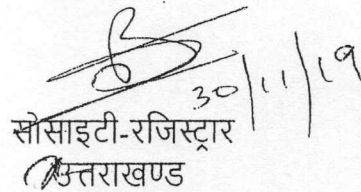 30/11/19
सोसाइटी-रजिस्ट्रार
उत्तराखण्ड